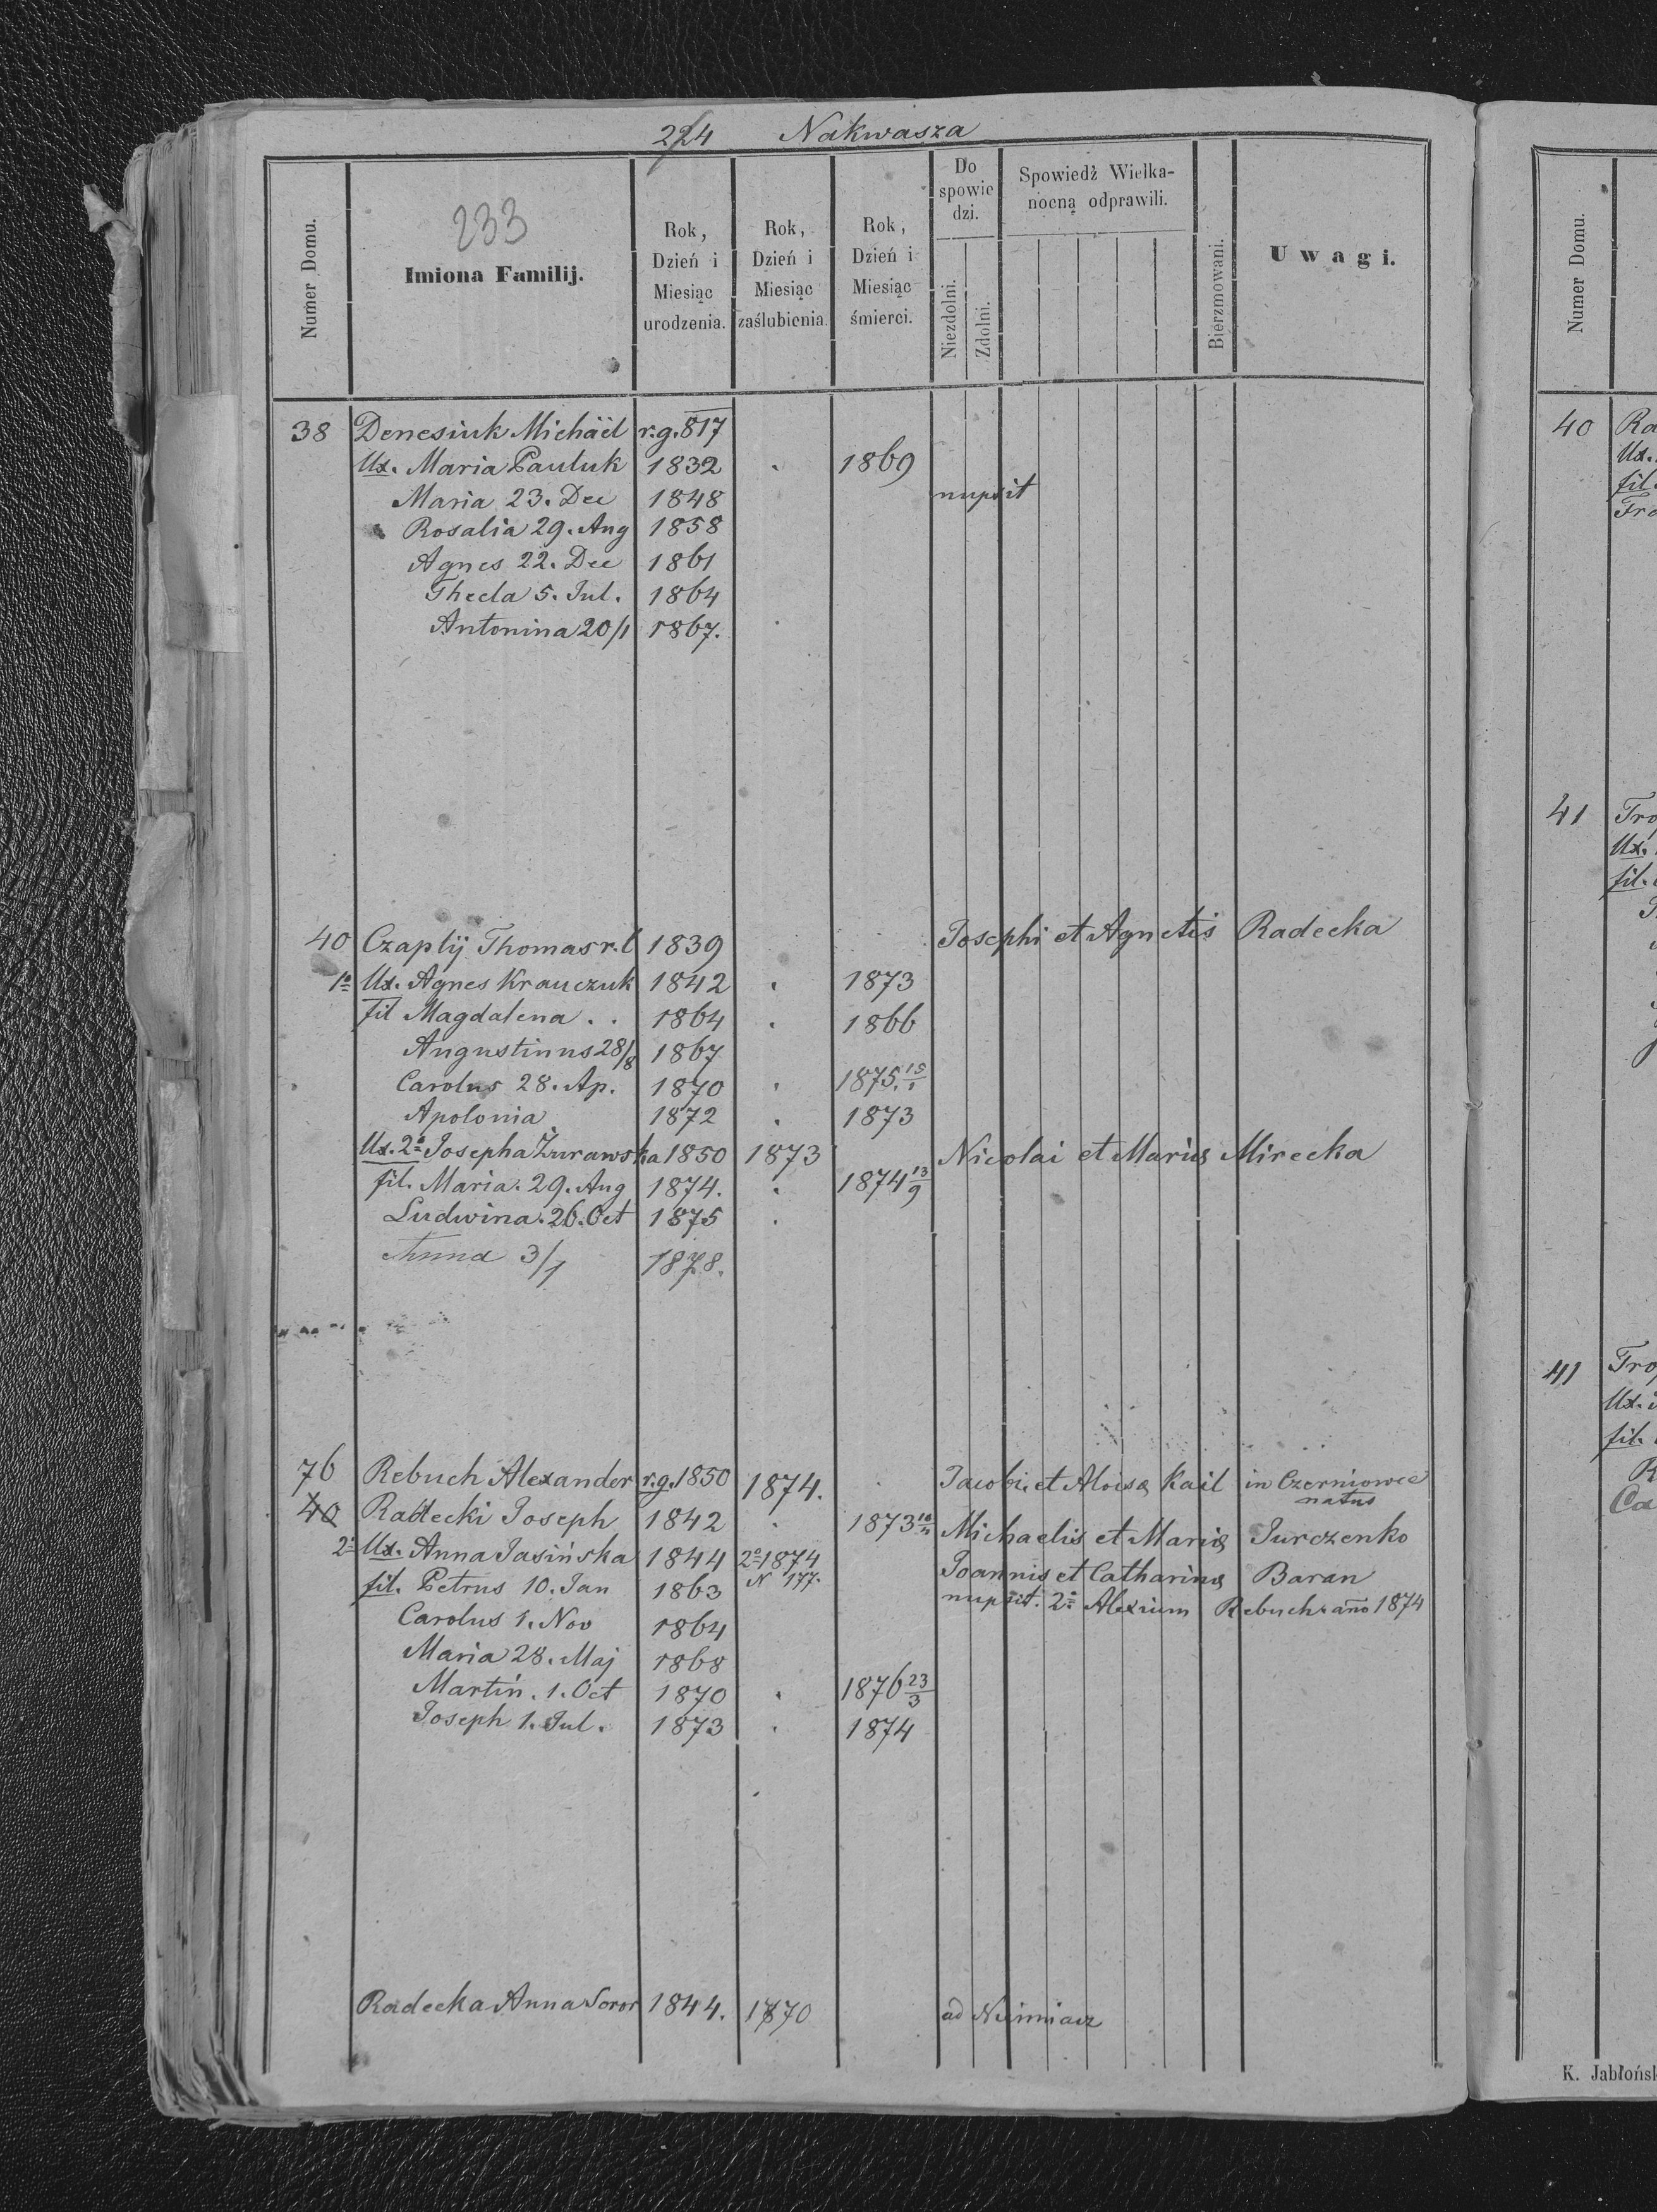 224 Nakwasza
233
Numer Domu.
Imiona Familij.
Rok, Dzień i Miesiąc urodzenia.
Rok, Dzień i Miesiąc zaślubienia.
Rok, Dzień i Miesiąc śmierci.
Do spowiedzi.
Niezdolni.
Zdolni.
Spowiedź Wielkanocną odprawili.
Bierzmowani.
Uwagi.
38 Denesiuk Michäel r.g. 817
Ux. Maria Pauluk 1832 1869
Maria 23. Dec 1848 nupsit
Rosalia 29. Aug 1858
Agnes 22. Dec 1861
Thecla 5. Jul. 1864
Antonina 20/1 1867.
40 Czaplij Thomas r.l 1839 Josephi et Agnetis Radecka
1º Ux. Agnes Krauczuk 1842 1873
fil Magdalena . . 1864 1866
Augustinus 28/8 1867
Carolus 28. Ap. 1870 1875. 15/1
Apolonia 1872 1873
Ux. 2º Josepha Żurawska 1850 1873 Nicolai et Mariæ Mirecka
fil. Maria. 29. Aug 1874. 1874 13/9
Ludwina. 26. Oct 1875
Anna 3/1 1878.
76 Rebuch Alexander r.g. 1850 1874. Jacobi et Aloisæ Kail in Czerniowce natus
40 Radecki Joseph 1842 1873 Michaelis et Mariæ Jurczenko
2º Ux. Anna Jasińska 1844 2º 1874 Joannis et Catharinæ Baran
N 177.
fil. Petrus 10. Jan 1863 nupsit. 2º Alexium Rebuch. año 1874
Carolus 1. Nov 1864
Maria 28. Maj 1868
Martin. 1. Oct 1870 1876 23/3
Joseph 1. Jul. 1873 1874
Radecka Anna Soror 1844. 1870 ad
Numer Domu.
40 Ra
Ux.
fil.
Fra
41 Tro
Ux.
fil.
41 Tro
Ux.
fil.
R
Ca
K. Jabłońsk